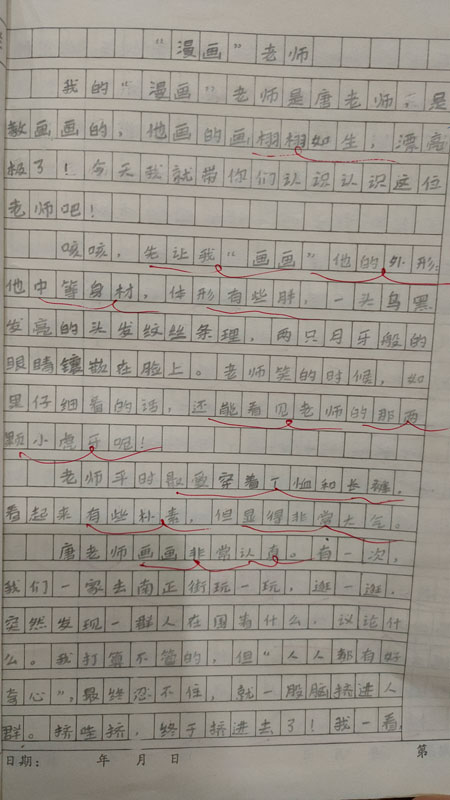 “漫画”老师
我的“漫画”老师是唐老师,是
教画画的,他画的画栩栩如生,漂亮
极了!今天我就带你们认识认识这位
老师吧!
咳咳,先让我“画画”他的外形:
他中等身材,体形有些胖,一头乌黑
发亮的头发纹丝条理,两只月牙般的
眼睛镶嵌在脸上。老师笑的时候,如
果仔细看的话,还能看见老师的那两
颗小虎牙呢!
老师平时喜欢穿着丁恤和长裤,
看起来有些朴素,但显得非常大气。
唐老师画画非常认真。有一次,
我们一家去南正街玩一玩,逛一逛,
突然发现一群人在围着什么,议论什
么。我打算不管的,但“人人都有好
奇心”,最终忍不住,就一股脑挤进人
群。挤哇挤,终于挤进去了!我一看,
日期: 年 月 日 第